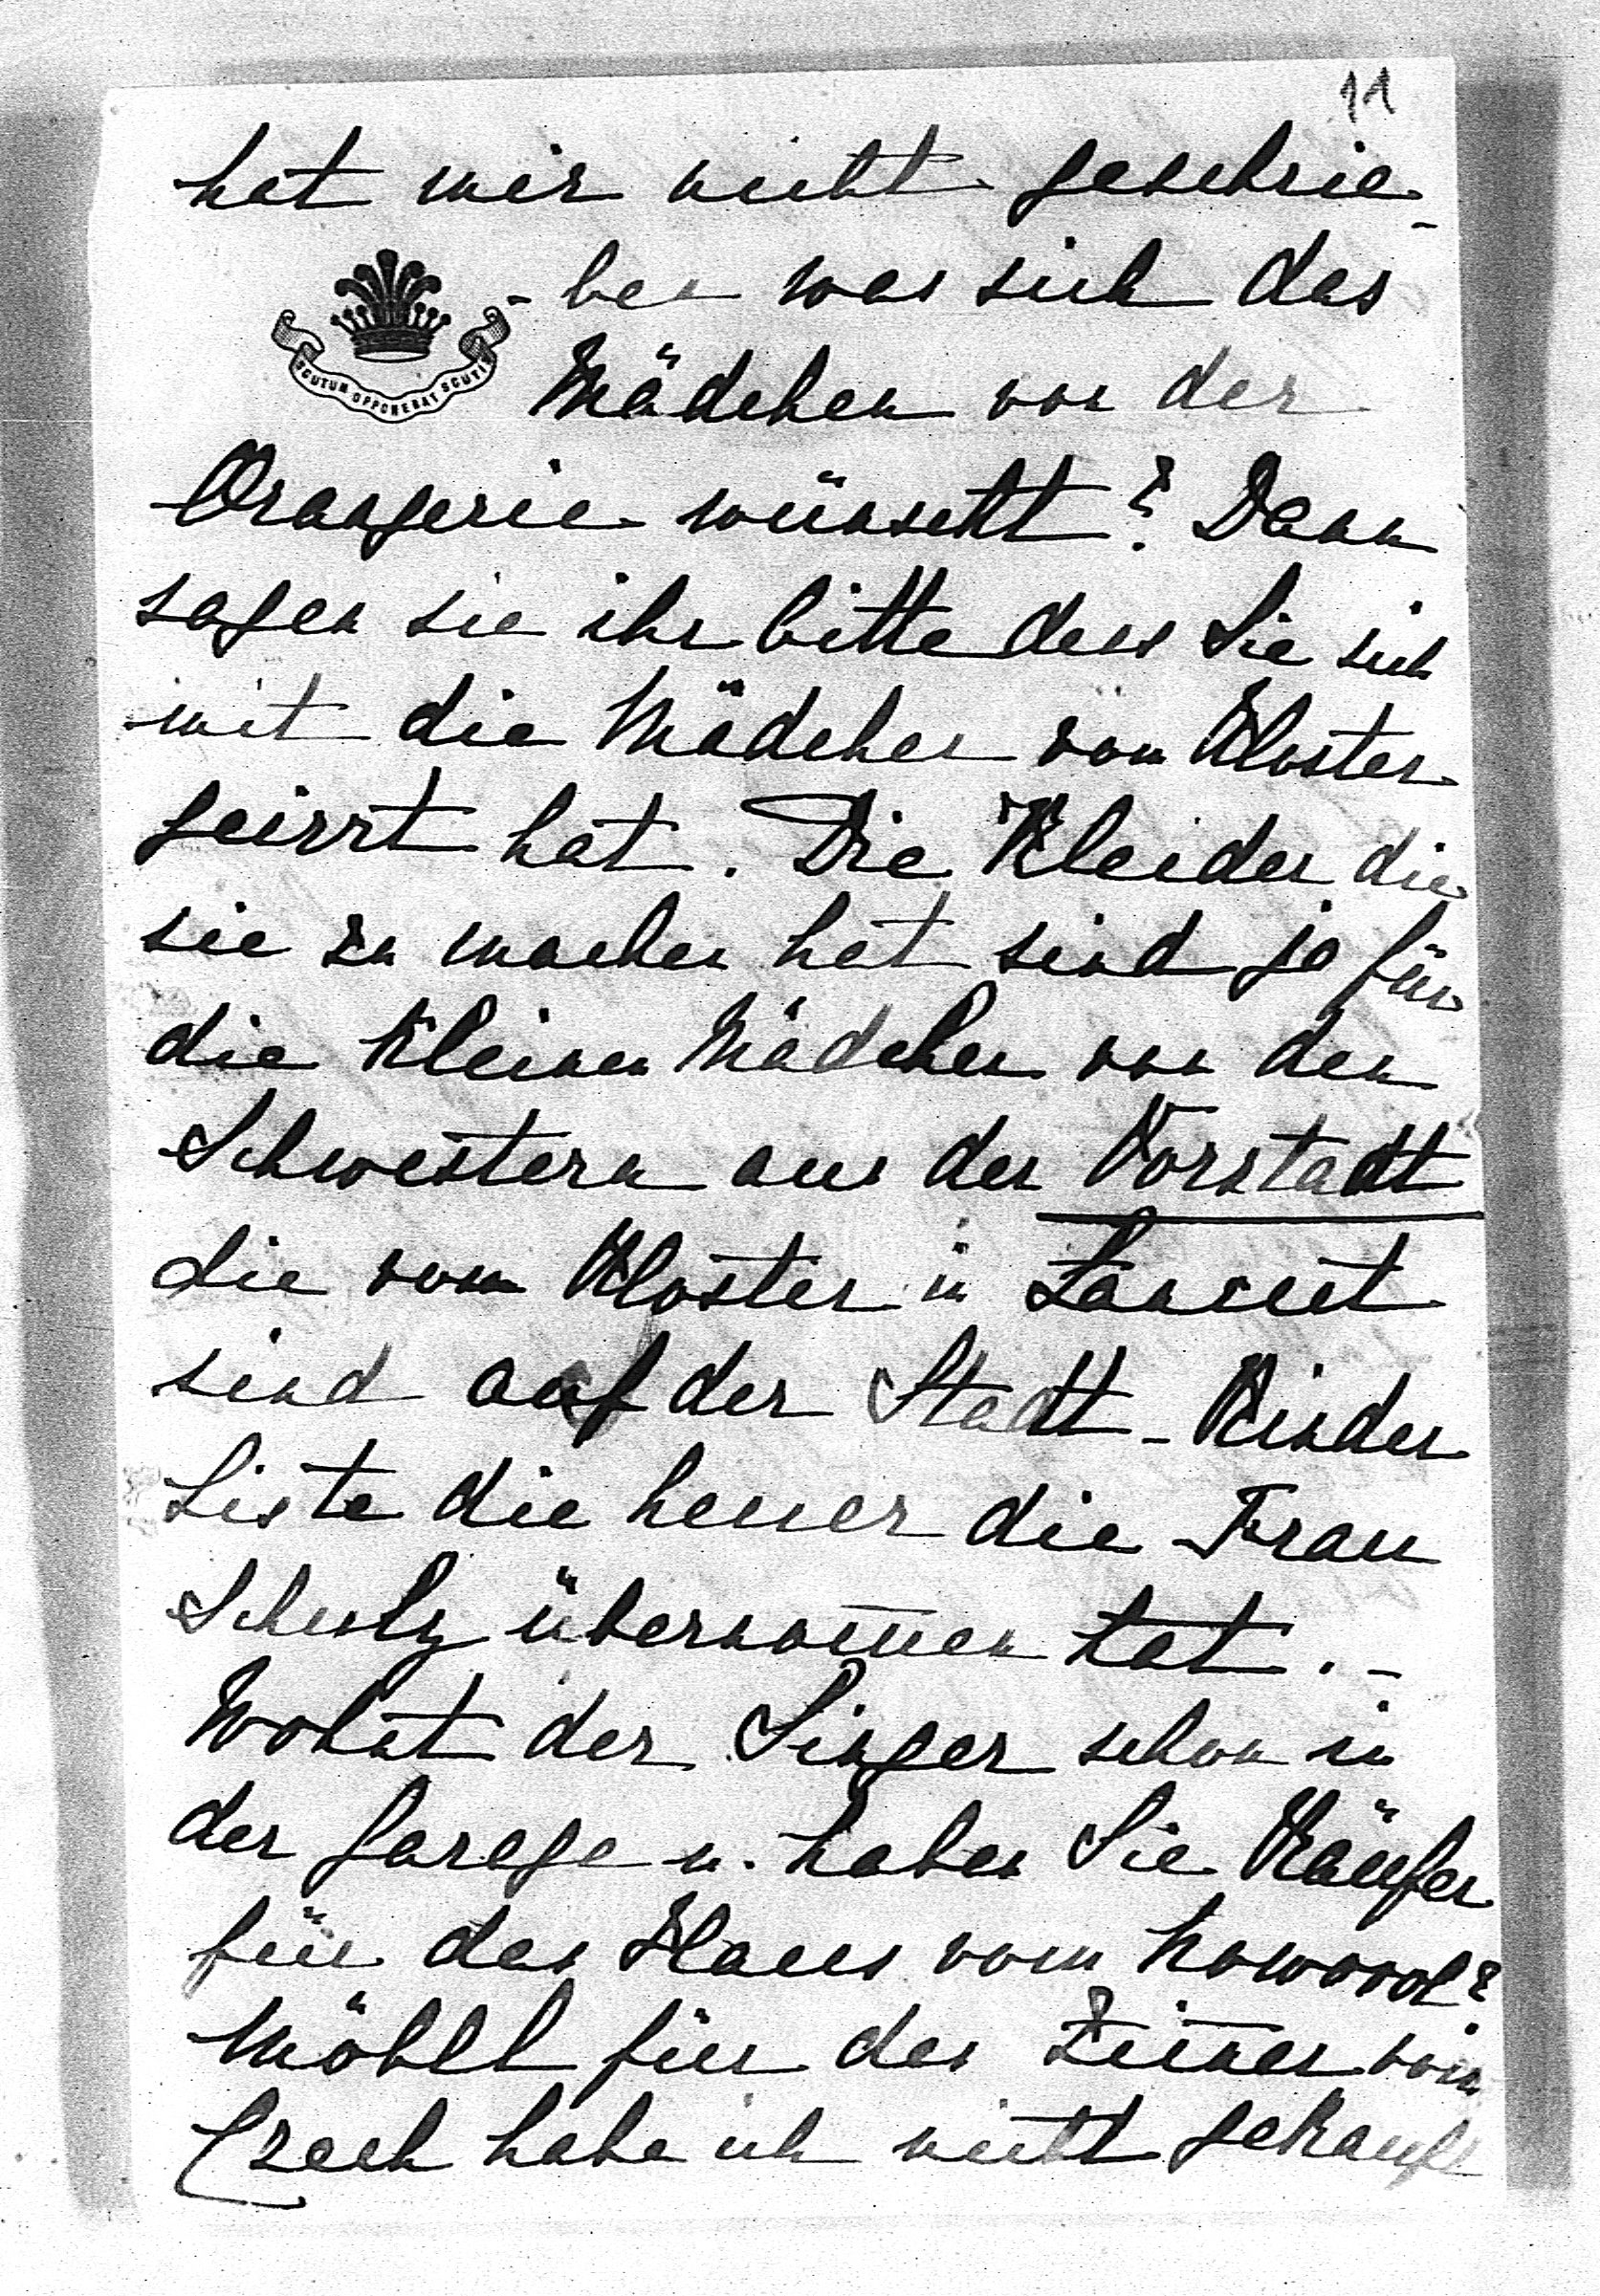 11
hat mir nicht geschrie-
SCUTUM OPPONEBAT SCUTIS
-ben was sich das
Mädchen von der
Orangerie wünscht? Dann
sagen sie ihr bitte dass Sie sich
mit die Mädchen vom Kloster
geirrt hat. Die Kleider die
sie zu machen hat sind ja für
die kleinen Mädchen von den
Schwestern aus der Vorstadt
die vom Kloster in Lancut
sind auf der Stadt-Kinder
Liste die heuer die Frau
Schulz übernom̅en hat.-
Wohnt der Singer schon in
der Garage u. haben Sie Käufer
für das Haus vom
Möbll für das Zim̅er vom
Czech habe ich nicht gekauft